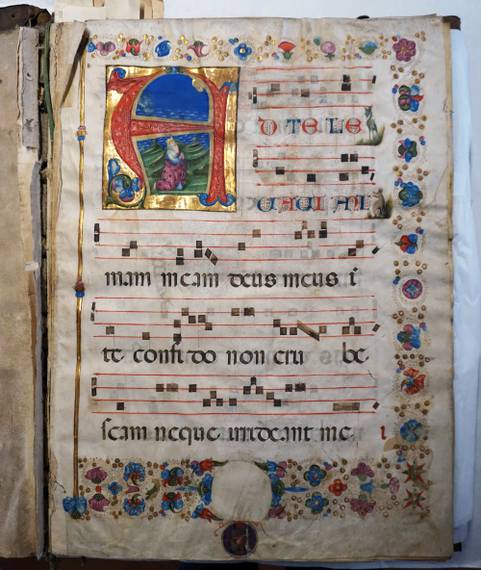 AD TE LE
UAUI ANI
mam meam deus meus i
te confi do non eru be
scam neque irrideant me